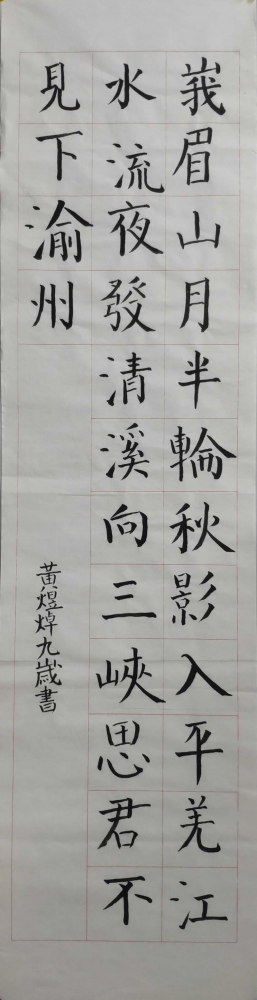 峩眉山月半輪秋影入平羌江
水流夜發清溪向三峽思君不
見下渝州
黃煜焯九歲書